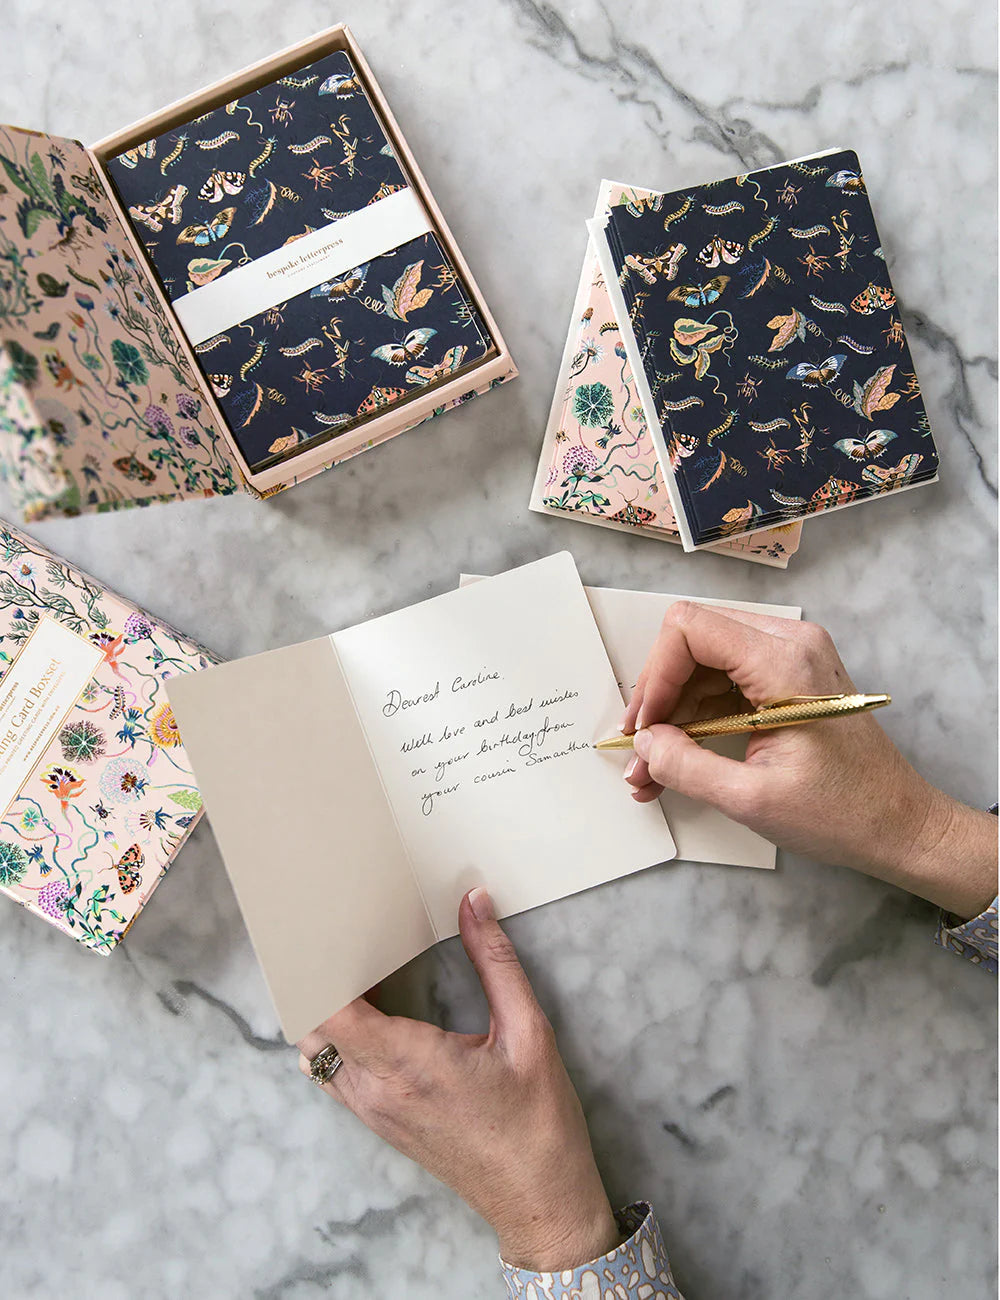 bespoke letterpress
Dearest Caroline,
With love and best wishes
on your birthday from
your cousin Samantha
letterpress
Card Boxset